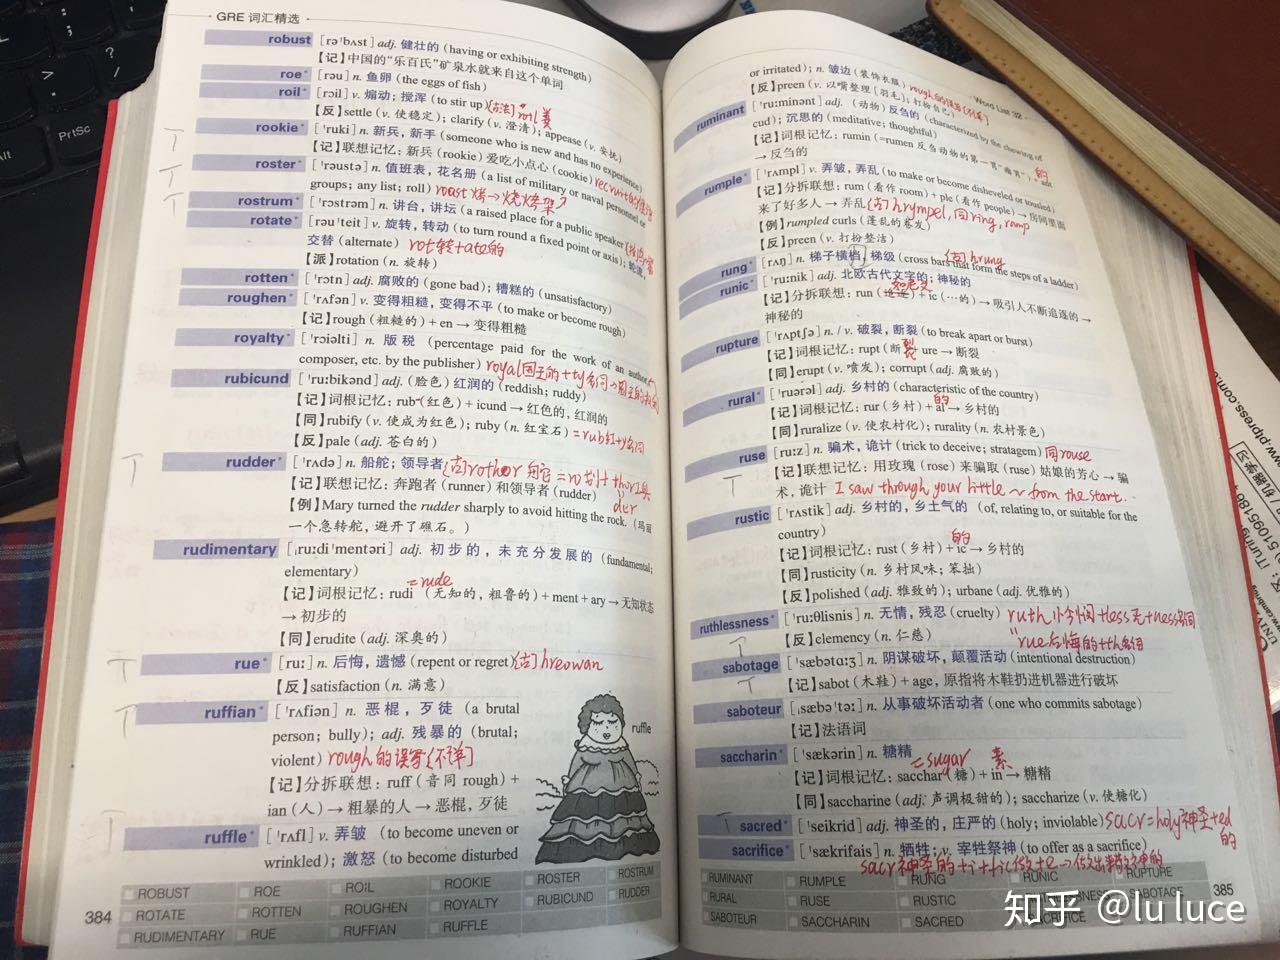 GRE 词汇精选
robust [rəˈbʌst] adj. 健壮的 (having or exhibiting strength)
【记】中国的“乐百氏”矿泉水就来自这个单词
roe* [rəu] n. 鱼卵 (the eggs of fish)
roil* [rɔil] v. 煽动；搅浑 (to stir up)
【反】settle (v. 使稳定)；clarify (v. 澄清)；appease (v. 安抚)
rookie* [ˈruki] n. 新兵，新手 (someone who is new and has no experience)
【记】联想记忆：新兵 (rookie) 爱吃小点心 (cookie)
roster* [ˈrəustə] n. 值班表，花名册 (a list of military or naval personnel or
groups; any list; roll) roast 烤→烧烤架?
rostrum* [ˈrɔstrəm] n. 讲台，讲坛 (a raised place for a public speaker)
rotate* [rəuˈteit] v. 旋转，转动 (to turn round a fixed point or axis)；轮流，
交替 (alternate) rot转+ate的
【派】rotation (n. 旋转)
rotten* [ˈrɔtn] adj. 腐败的 (gone bad)；糟糕的 (unsatisfactory)
roughen* [ˈrʌfən] v. 变得粗糙，变得不平 (to make or become rough)
【记】rough (粗糙的) + en → 变得粗糙
royalty* [ˈrɔiəlti] n. 版税 (percentage paid for the work of an author,
composer, etc. by the publisher) royal国王的+ty名词→国王的
rubicund [ˈruːbikənd] adj. (脸色) 红润的 (reddish; ruddy)
【记】词根记忆：rub (红色) + icund → 红色的，红润的
【同】rubify (v. 使成为红色)；ruby (n. 红宝石) =rub红+y名词
【反】pale (adj. 苍白的)
rudder* [ˈrʌdə] n. 船舵；领导者 [古]rother 舵=ro划+ther工具
der
【记】联想记忆：奔跑者 (runner) 和领导者 (rudder)
【例】Mary turned the rudder sharply to avoid hitting the rock. (玛丽
一个急转舵，避开了礁石。)
rudimentary [ˌruːdiˈmentəri] adj. 初步的，未充分发展的 (fundamental;
elementary)
=rude
【记】词根记忆：rudi (无知的，粗鲁的) + ment + ary → 无知状态
→ 初步的
【同】erudite (adj. 深奥的)
rue* [ruː] n. 后悔，遗憾 (repent or regret) [古]hreowan
【反】satisfaction (n. 满意)
ruffian* [ˈrʌfiən] n. 恶棍，歹徒 (a brutal
person; bully)；adj. 残暴的 (brutal;
violent) rough的误写[不详]
【记】分拆联想：ruff (音同 rough) +
ian (人) → 粗暴的人 → 恶棍，歹徒
ruffle
ruffle* [ˈrʌfl] v. 弄皱 (to become uneven or
wrinkled)；激怒 (to become disturbed
ROBUST ROE ROIL ROOKIE ROSTER ROSTRUM
ROTATE ROTTEN ROUGHEN ROYALTY RUBICUND RUDDER
RUDIMENTARY RUE RUFFIAN RUFFLE
384
Word List 32
or irritated)；n. 皱边 (装饰衣服) rough的误写[不详]
【反】preen (v. 以嘴整理 [羽毛]；打扮自己)
ruminant [ˈruːminənt] adj. (动物) 反刍的 (characterized by the chewing of
cud)；沉思的 (meditative; thoughtful)
【记】词根记忆：rumin (=rumen 反刍动物的第一胃“瘤胃”) + ant
→ 反刍的
rumple* [ˈrʌmpl] v. 弄皱，弄乱 (to make or become disheveled or tousled)
【记】分拆联想：rum (看作 room) + ple (看作 people) → 房间里面
来了好多人 → 弄乱 [古]hrympel, 同ring, ramp
【例】rumpled curls (蓬乱的卷发)
【反】preen (v. 打扮整洁)
[古]hrung
rung* [rʌŋ] n. 梯子横档，梯级 (cross bars that form the steps of a ladder)
runic* [ˈruːnik] adj. 北欧古代文字的；神秘的
【记】分拆联想：run (追逐) + ic (…的) → 吸引人不断追逐的 →
神秘的
rupture [ˈrʌptʃə] n. / v. 破裂，断裂 (to break apart or burst)
【记】词根记忆：rupt (断裂 ure → 断裂
【同】erupt (v. 喷发)；corrupt (adj. 腐败的)
rural* [ˈruərəl] adj. 乡村的 (characteristic of the country)
的
【记】词根记忆：rur (乡村) + al → 乡村的
【同】ruralize (v. 使农村化)；rurality (n. 农村景色)
ruse [ruːz] n. 骗术，诡计 (trick to deceive; stratagem) 同rouse
【记】联想记忆：用玫瑰 (rose) 来骗取 (ruse) 姑娘的芳心 → 骗
术，诡计 I saw through your little ~ from the start.
rustic [ˈrʌstik] adj. 乡村的，乡土气的 (of, relating to, or suitable for the
country)
的
【记】词根记忆：rust (乡村) + ic → 乡村的
【同】rusticity (n. 乡村风味；笨拙)
【反】polished (adj. 雅致的)；urbane (adj. 优雅的)
ruthlessness* [ˈruːθlisnis] n. 无情，残忍 (cruelty) ruth 怜悯+less无+ness名词
【反】clemency (n. 仁慈) rue后悔的+th名词
sabotage [ˈsæbətɑːʒ] n. 阴谋破坏，颠覆活动 (intentional destruction)
【记】sabot (木鞋) + age，原指将木鞋扔进机器进行破坏
saboteur [ˌsæbəˈtəː] n. 从事破坏活动者 (one who commits sabotage)
【记】法语词
saccharin* [ˈsækərin] n. 糖精
=sugar 素
【记】词根记忆：sacchar (糖) + in → 糖精
【同】saccharine (adj. 声调极甜的)；saccharize (v. 使糖化)
sacred* [ˈseikrid] adj. 神圣的，庄严的 (holy; inviolable) sacr=holy神圣+ed
的
sacrifice* [ˈsækrifais] n. 牺牲；v. 宰牲祭神 (to offer as a sacrifice)
sacr神圣的+i+fic做+e→做出
RUMINANT RUMPLE RUNG RUNIC RUPTURE
RURAL RUSE RUSTIC SABOTAGE
SABOTEUR SACCHARIN SACRED SACRIFICE
385
PrtSc
Alt
知乎 @lu luce